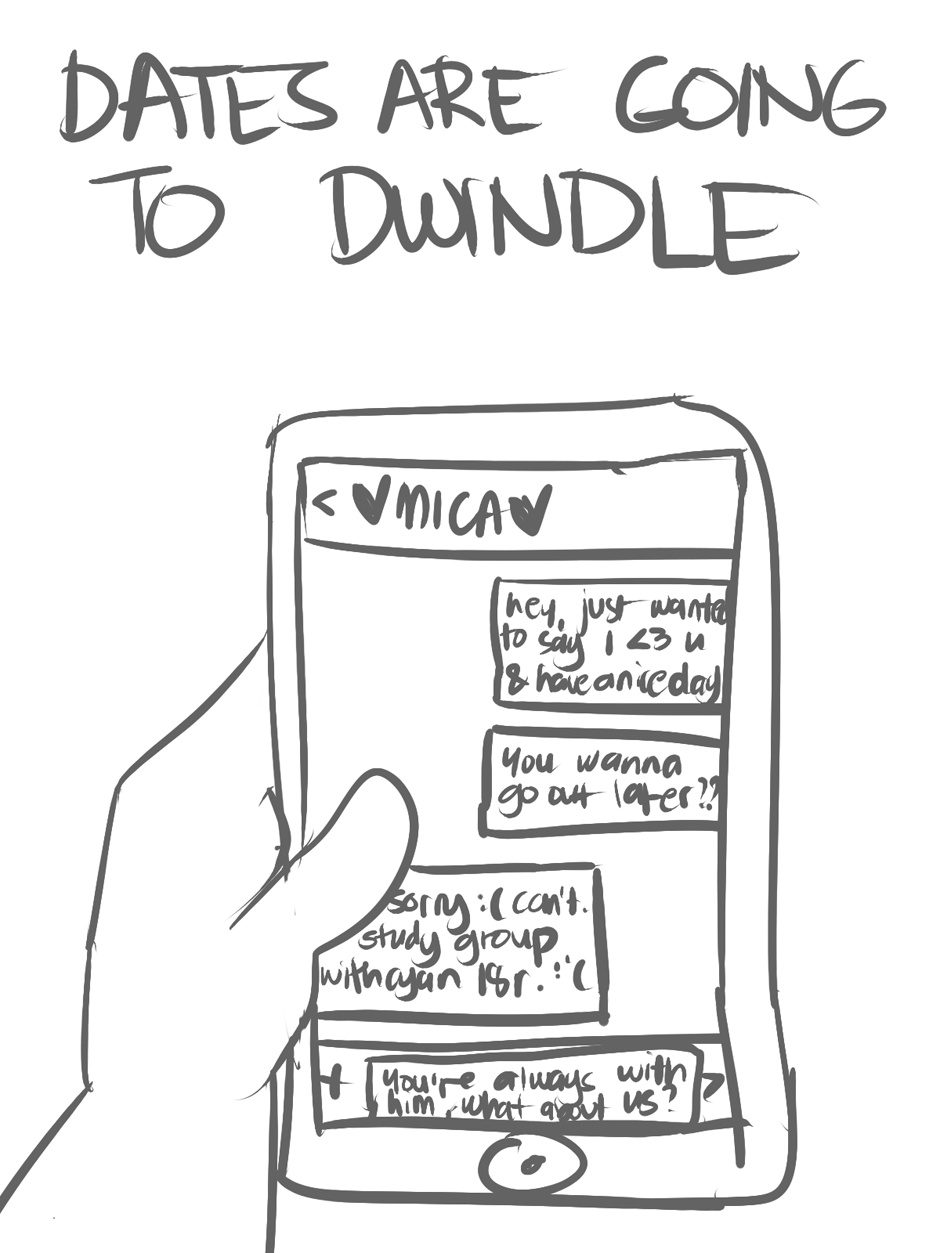 DATES ARE GOING
TO DWINDLE
< ♥MICA♥
hey, just wanted
to say I <3 u
& have a nice day
You wanna
go out later??
sorry :( can't.
study group
with cyan l8r. :'(
+ You're always with >
him, what about us?